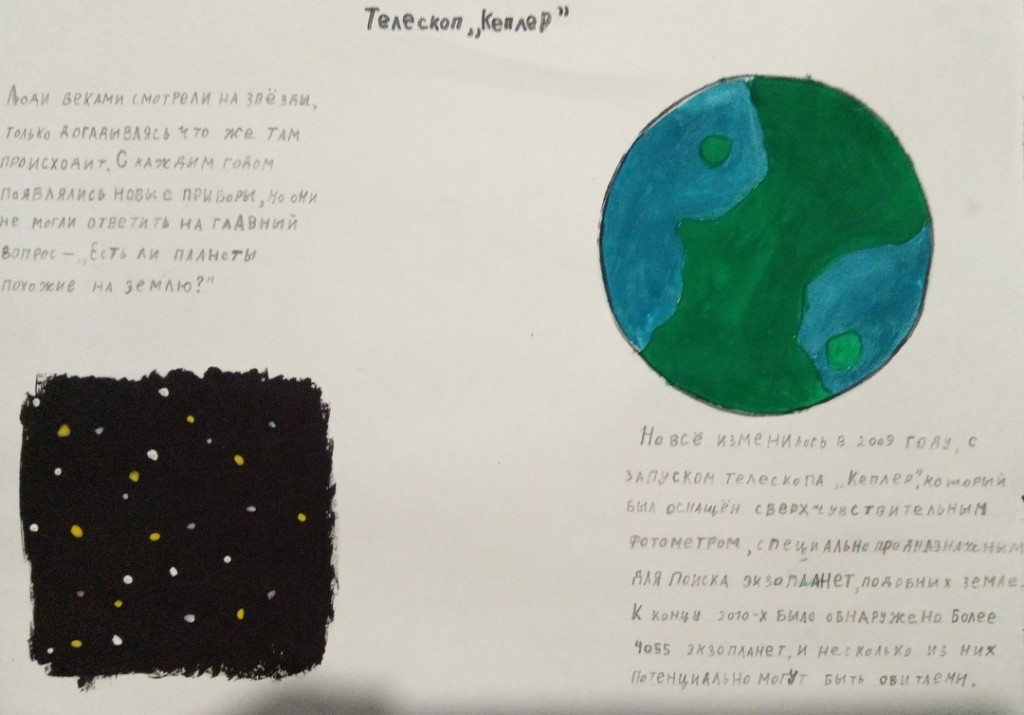 Телескоп „Кеплер”
Люди веками смотрели на звёзды,
только догадываясь что же там
происходит. С каждим годом
появлялись новые приборы, но они
не могли ответить на главный
вопрос – „Есть ли планеты
похожие на землю?”
Но всё изменилось в 2009 году, с
запуском телескопа „Кеплер”, который
был оснащён сверхчувствительным
фотометром, специально предназначеным
для поиска экзопланет, подобних земле.
К концу 2010-х было обнаружено более
4055 экзопланет, и несколько из них
потенциально могут быть обитаеми.